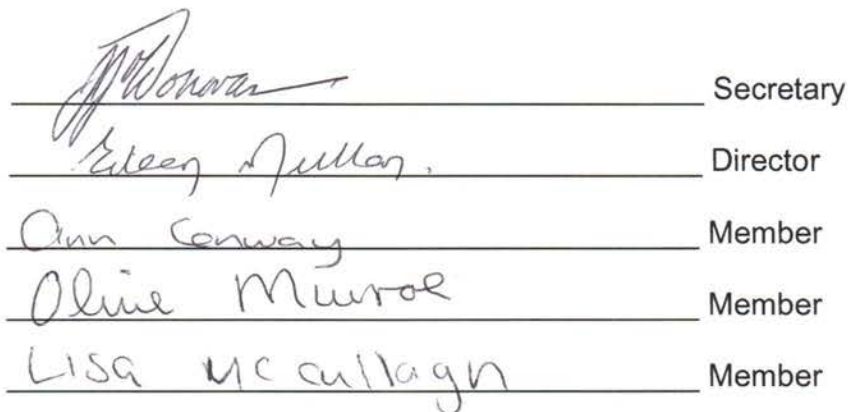 Secretary
Eileen Mullan. Director
Ann Conway Member
Olive Munroe Member
Lisa McCullagh Member